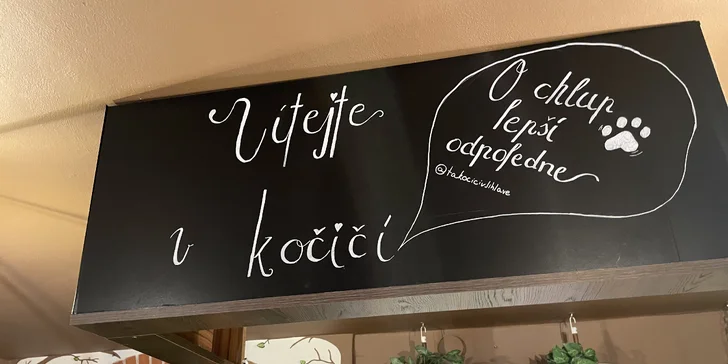 Vítejte
v kočičí
O chlup
lepší
odpoledne
@takocicivlihlave